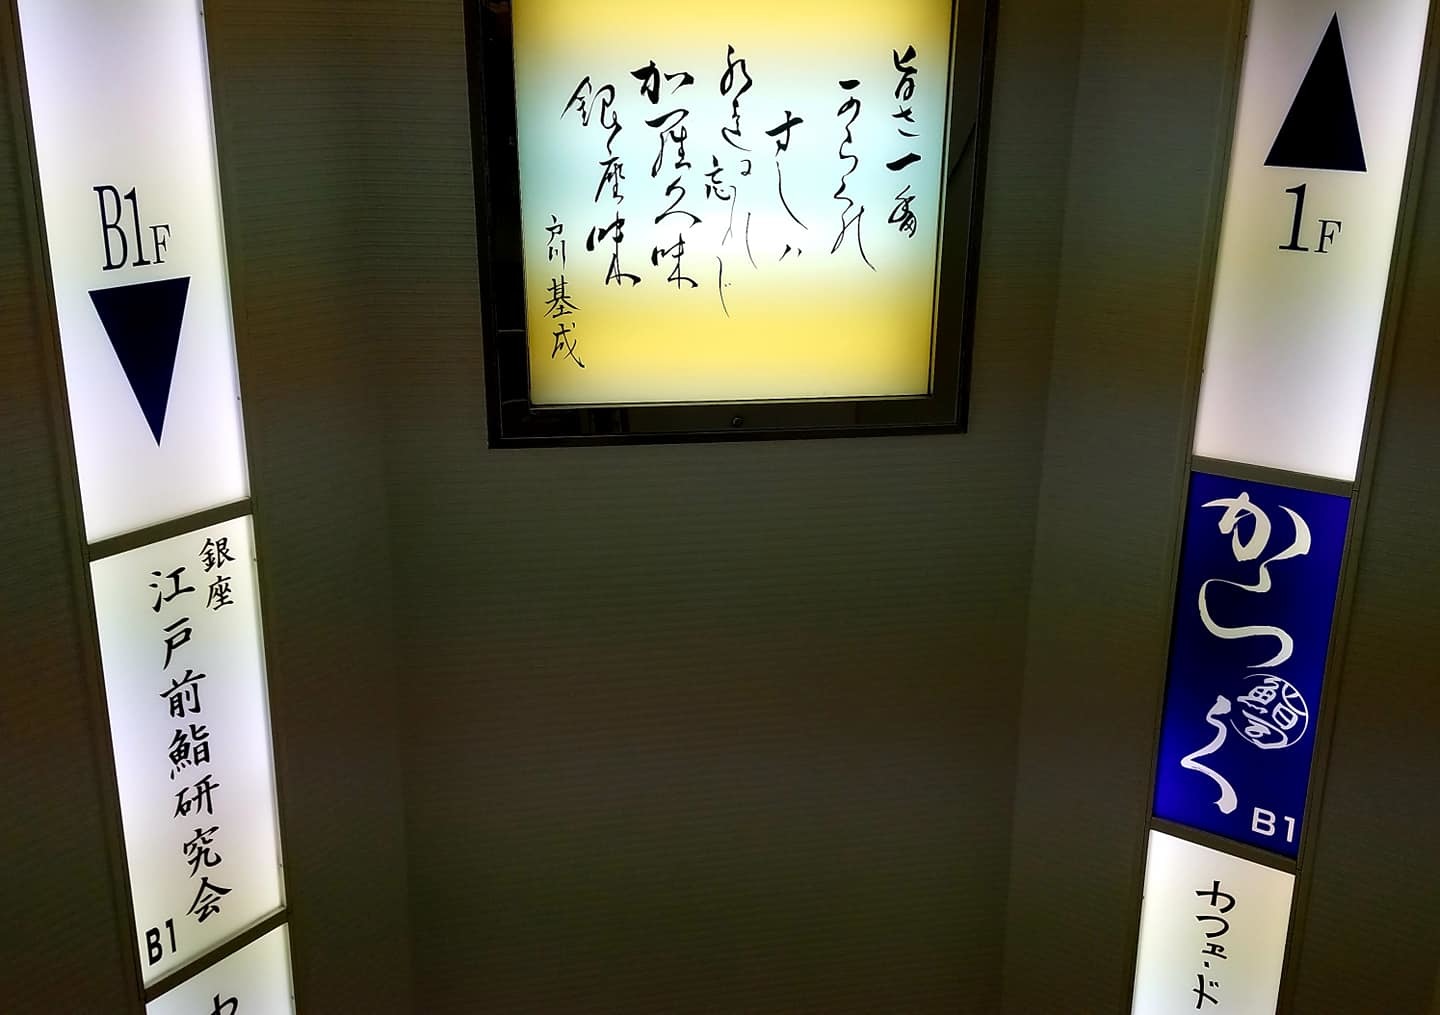 旨さ一番
からくの
すしハ
永き忘れじ
加羅久味
銀座味
戸川基成
B1F
銀座
江戸前鮨研究会
B1
カ
1F
からく
鮨司
B1
カフェ・ド